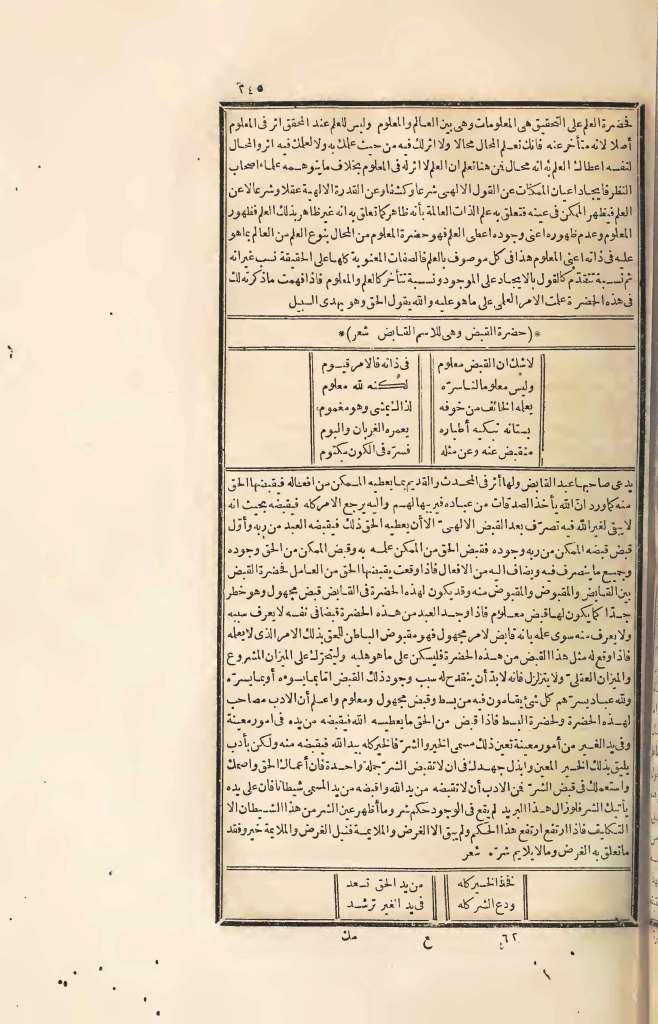 ٢٤٥
فحضرة العلم على التحقيق هى المعلومات وهى بين العالم والمعلوم وليس للعلم عند المحقق اثر فى المعلوم
أصلا لانه متأخر عنه فانك تعلم المحال محالا ولا اثر لك فيه من حيث علمك به ولا لعلمك فيه اثر والمحال
لنفسه اعطاك العلم به انه محال فمن هنا تعلم ان العلم لا اثر له فى المعلوم بخلاف ما يتوهمه علماء اصحاب
النظر فايجاد اعيان الممكنات عن القول الالهى شرعا وكشفا وعن القدرة الالهية عقلا وشرعا لا عن
العلم فيظهر الممكن فى عينه فتعلق به علم الذات العالمة بأنه ظاهر كما تعلق به انه غير ظاهر بذلك العلم فظهور
المعلوم وعدم ظهوره اعنى وجوده اعطى العلم فهو حضرة المعلوم من المحال بنوع العلم من العالم بما هو
عليه فى ذاته اعنى المعلوم هذا فى كل موصوف بالعلم فالصفات المعنوية كلها على الحقيقة نسب غير انه
ثم نسبة تتقدّم كالقول بالايجاد على الموجود ونسبة تتأخر كالعلم والمعلوم فاذا فهمت ما ذكرته لك
فى هذه الحضرة علمت الامر العلمى على ما هو عليه والله يقول الحق وهو يهدى السبيل
*(حضرة القبض وهى للاسم القابض شعر)*
لا شك ان القبض معلوم فى ذاته فالامر قيوم
وليس معلوما لنا سرّه لكنه لله معلوم
يعلمه الخائف من خوفه لذاك يمشى وهو مغموم
بستانه تبكيه أطياره يعمره الغربان والبوم
منقبض عنه وعن مثله فسرّه فى الكون مكتوم
يدعى صاحبها عبد القابض ولها أثر فى المحدث والقديم بما يعطيه الممكن من افعاله فيقبضها الحق
منه كما ورد انّ الله يأخذ الصدقات من عباده فيربيها لهم واليه يرجع الامر كله فيقبضه بحيث انه
لا يبقى لغير الله فيه تصرّف بعد القبض الالهىّ الا أن يعطيه الحق ذلك فيقبضه العبد من ربه وأوّل
قبض قبضه الممكن من ربه وجوده فقبض الحق من الممكن علمه به وقبض الممكن من الحق وجوده
وجميع ما يتصرف فيه ويضاف اليه من الافعال فاذا وقعت يقبضها الحق من العامل فحضرة القبض
بين القابض والمقبوض والمقبوض منه وقد يكون لهذه الحضرة فى القابض قبض مجهول وهو خطر
جدّا كما يكون لها قبض معلوم فاذا وجد العبد من هذه الحضرة قبضا فى نفسه لا يعرف سببه
ولا يعرف منه سوى علمه بانه قابض لامر مجهول فهو مقبوض الباطن للحق بذلك الامر الذى لا يعلمه
فاذا وقع له مثل هذا القبض من هذه الحضرة فليسكن على ما هو عليه وليتحرّك على الميزان المشروع
والميزان العقلىّ ولا يتزلزل فانه لا بدّ أن ينقدح له سبب وجود ذلك القبض امّا بما يسوءه أو بما يسرّه
ولله عباد يسرّهم كل شئ يقامون فيه من بسط وقبض مجهول ومعلوم واعلم أن الادب مصاحب
لهذه الحضرة ولحضرة البسط فاذا قبض من الحق ما يعطيه الله فيقبضه من يده فى امور معينة
وفى يد الغير من أمور معينة تعين ذلك مسمى الخير والشرّ فالخير كله بيد الله فيقبضه منه ولكن بأدب
يليق بذلك الخير المعين وابذل جهدك فى ان لا تقبض الشرّ جملة واحدة فان أعمالك الحق واصمك
واستعملك فى قبض الشرّ فمن الادب أن لا تقبضه من يد الله واقبضه من يد المسمى شيطانا فان على يده
يأتيك الشر فلو زال هذا البريد لم يقع فى الوجود حكم شر وما أظهر عين الشر من هذا الشيطان الا
التكليف فاذا ارتفع ارتفع هذا الحكم ولم يبق الا الغرض والملايمة فنيل الغرض والملايمة خير وفقد
ما تعلق به الغرض وما لا يلايم شرّ شعر
فخذ الخير كله من يد الحق تسعد
ودع الشر كله فى يد الغير ترشد
٦٢ ع مك